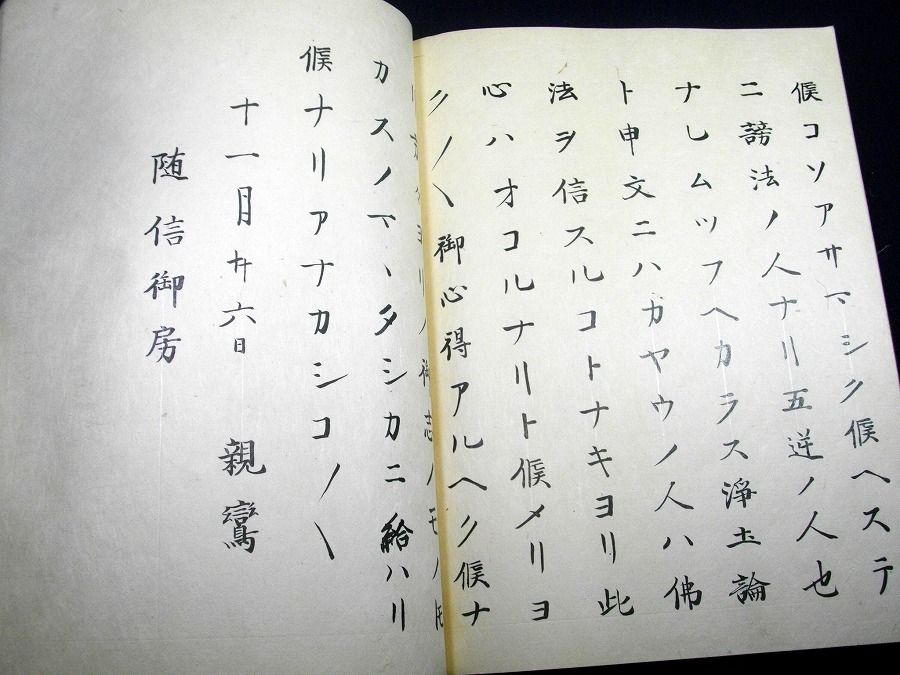 候コソアサマシク候ヘステ
ニ謗法ノ人ナリ五逆ノ人也
ナレムツフヘカラス淨土論
ト申文ニハカヤウノ人ハ佛
法ヲ信スルコトナキヨリ此
心ハオコルナリト候メリヨ
ク〱御心得アルヘク候ナ
ヨリノ御志ノモノトモ
カスノマヽタシカニ給ハリ
候ナリアナカシコ〱
十一月廿六日 親鸞
随信御房